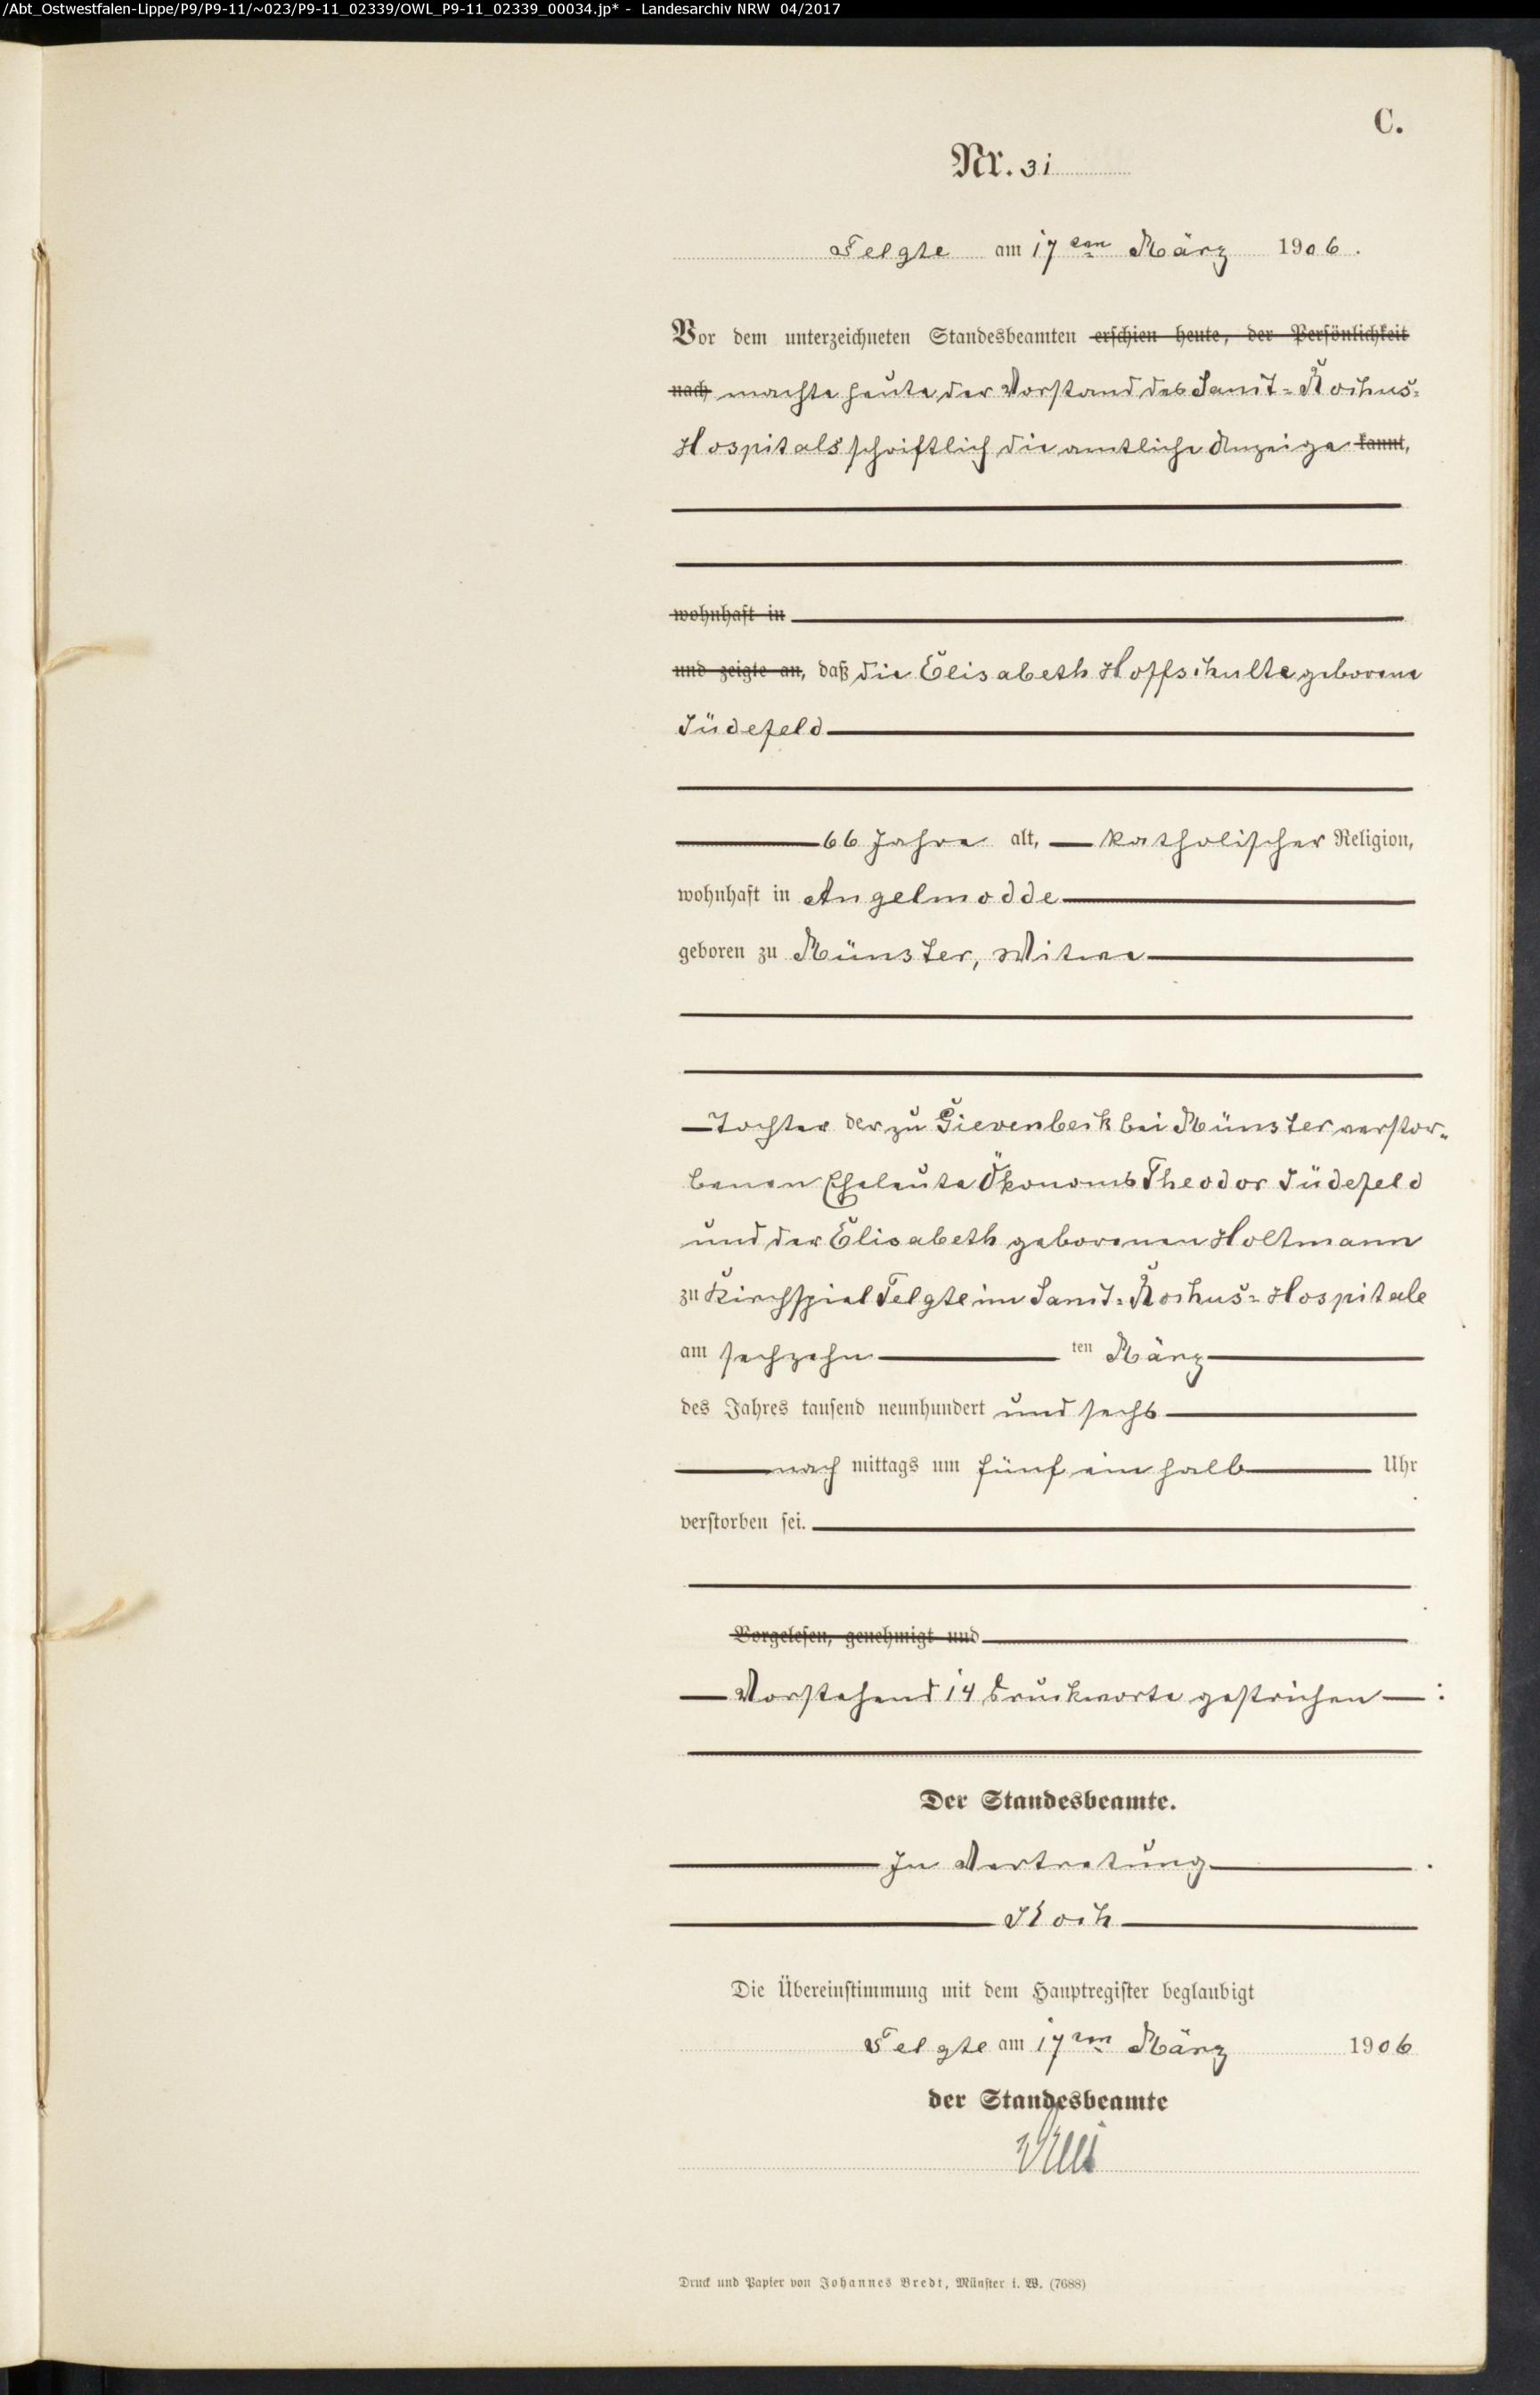 /Abt_Ostwestfalen-Lippe/P9/P9-11/~023/P9-11_02339/OWL_P9-11_02339_00034.jp* - Landesarchiv NRW 04/2017
C.
Nr. 31
Telgte am 17ten März 1906.
Vor dem unterzeichneten Standesbeamten erschien heute, der Persönlichkeit
nach machte heute der Vorstand des Sanct-Rochus-
Hospitals schriftlich die amtliche Anzeige kannt,
wohnhaft in
und zeigte an, daß die Elisabeth Hoffschulte geborene
Jüdefeld
66 Jahre alt, katholischer Religion,
wohnhaft in Angelmodde
geboren zu Münster, Witwe
Tochter der zu Gievenbeck bei Münster verstor-
benen Eheleute Ökonoms Theodor Jüdefeld
und der Elisabeth geborenen Holtmann
zu Kirchspiel Telgte im Sanct-Rochus-Hospitale
am sechzehn ten März
des Jahres tausend neunhundert und sechs
nach mittags um fünf ein halb Uhr
verstorben sei.
Vorgelesen, genehmigt und
Vorstehend 14 Druckworte gestrichen :
Der Standesbeamte.
In Vertretung
Koch
Die Übereinstimmung mit dem Hauptregister beglaubigt
Telgte am 17ten März 1906
der Standesbeamte
Druck und Papier von Johannes Bredt, Münster i. W. (7688)